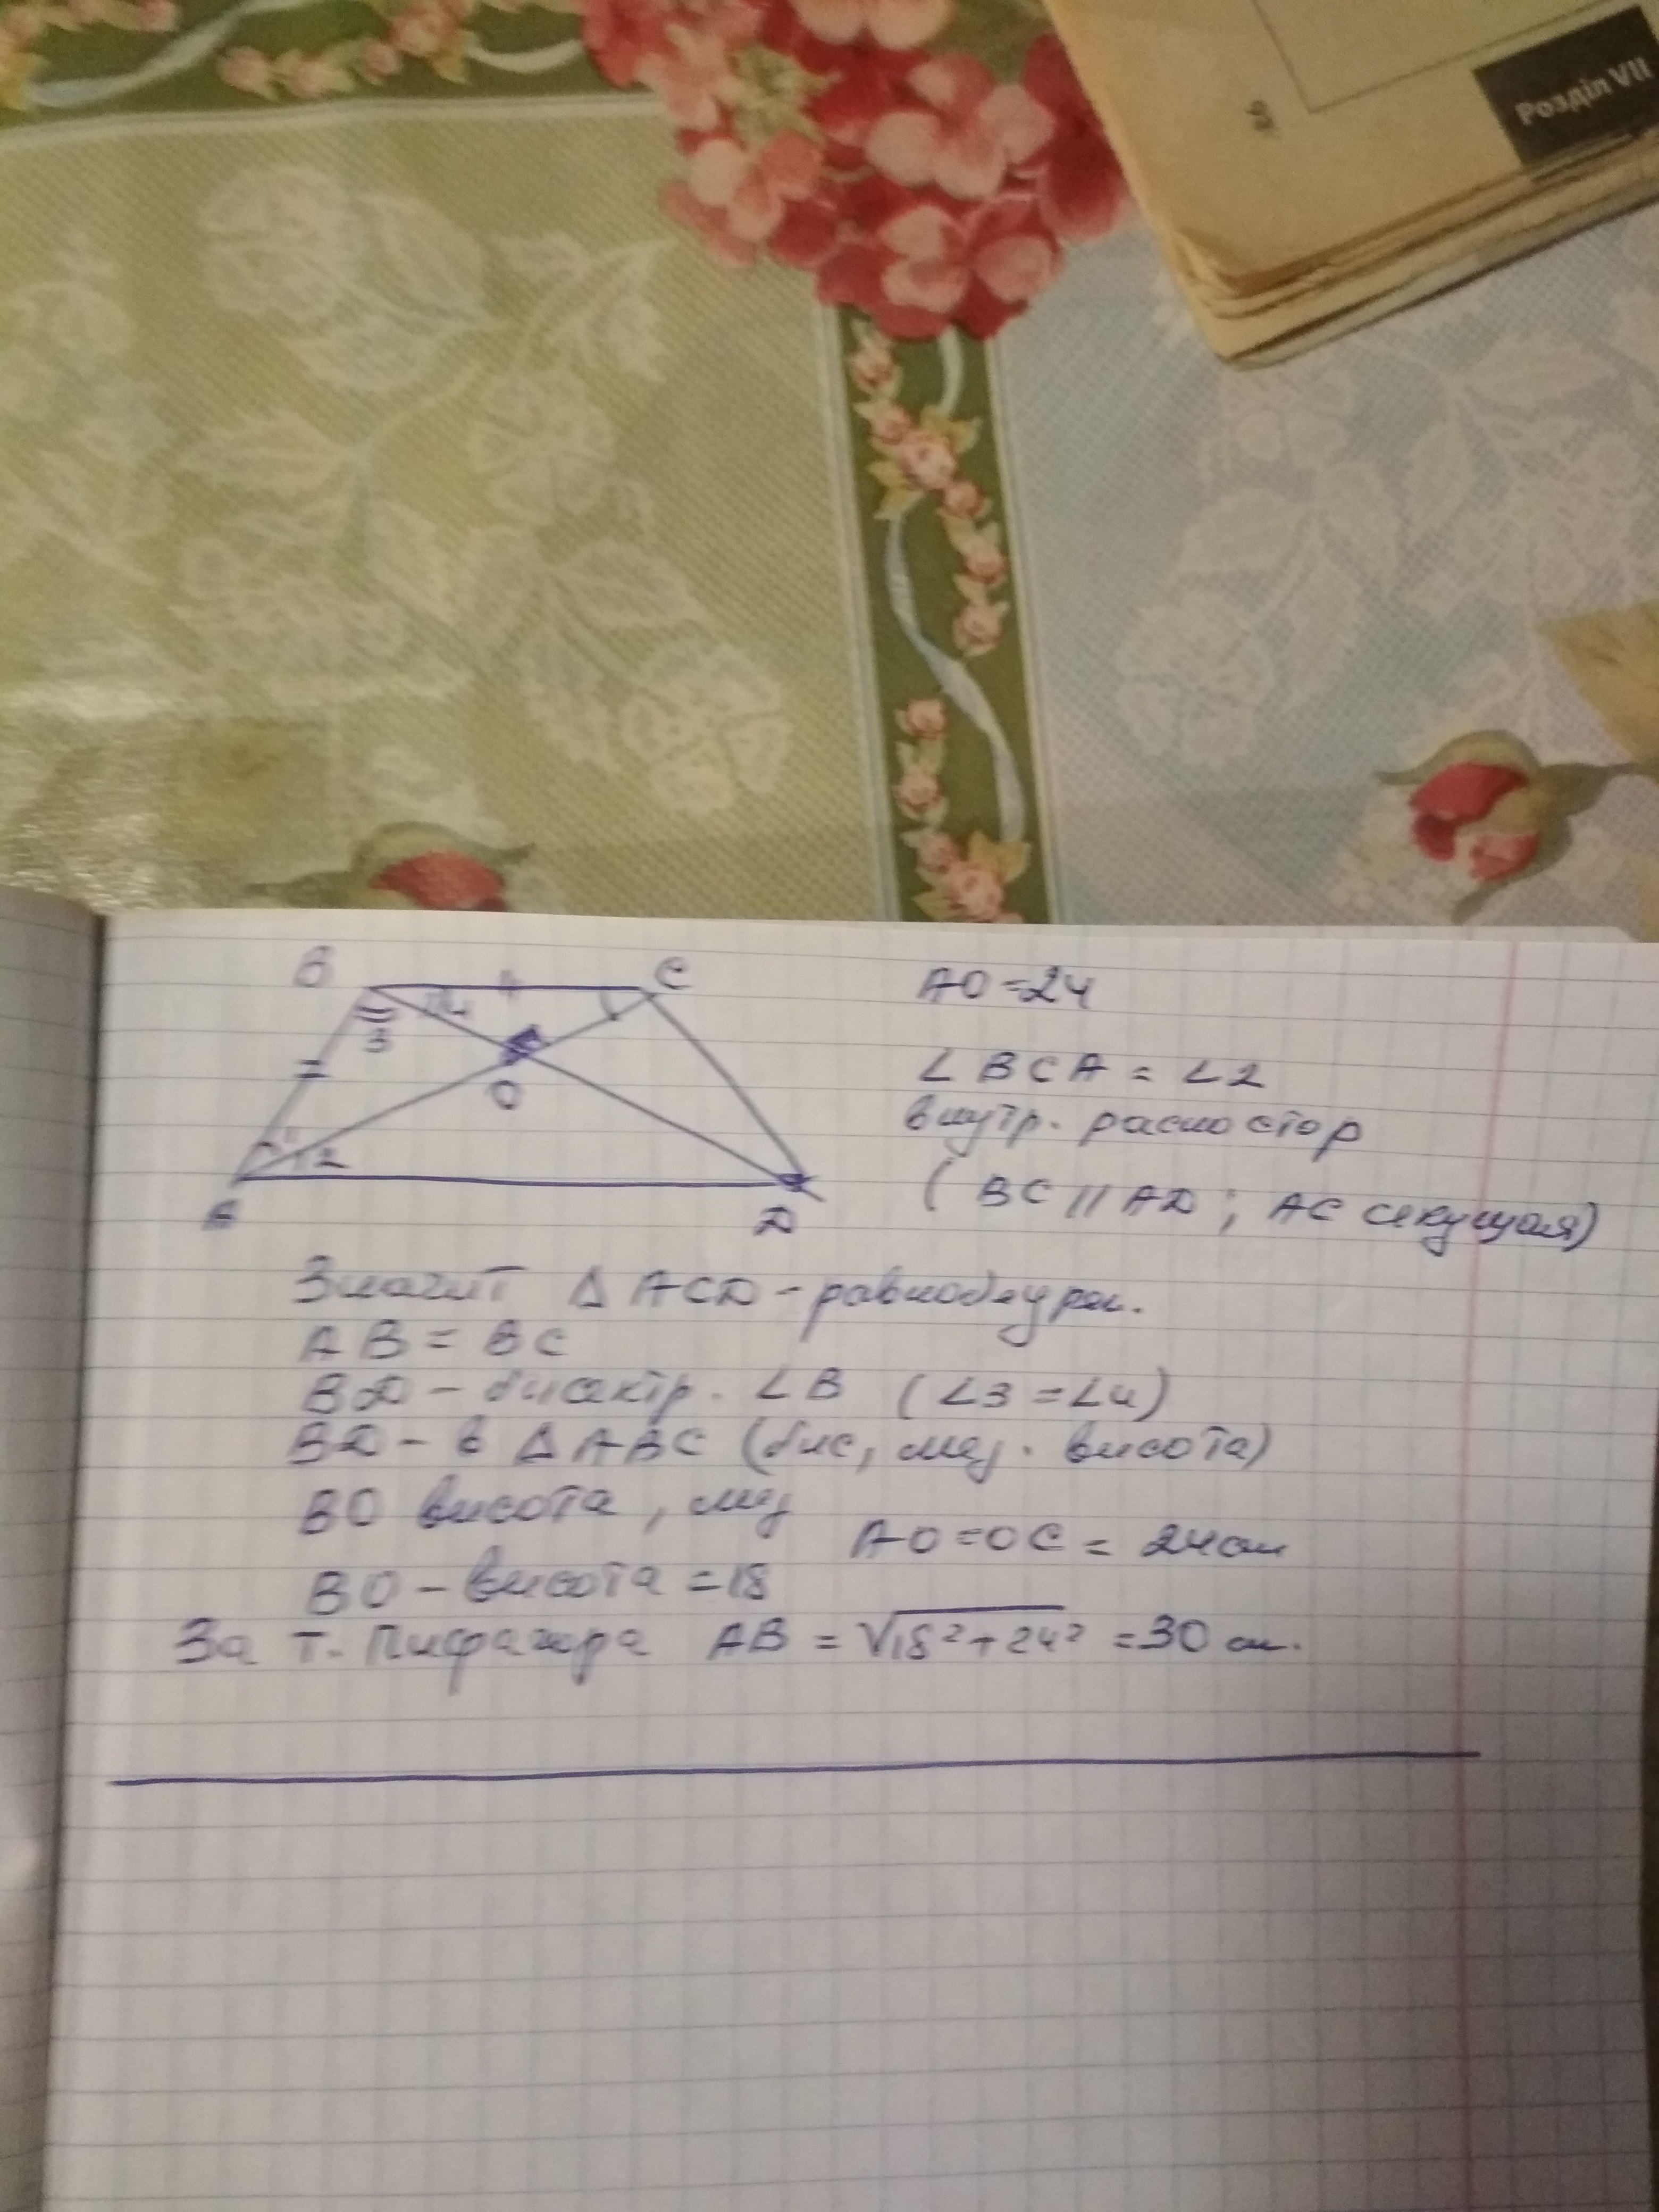 Розділ VII
B
C
4
3
O
1
2
A
D
AO = 24
∠ BCA = ∠2
внутр. разностор
( BC || AD ; AC секущая)
Значит Δ ACD - равнобедрен.
AB = BC
BD - бисектр. ∠B (∠3 = ∠4)
BD - в Δ ABC (бис, мед. висота)
BO висота, мед
AO = OC = 24 см
BO - висота = 18
За т. Пифагора AB = √18² + 24² = 30 см.